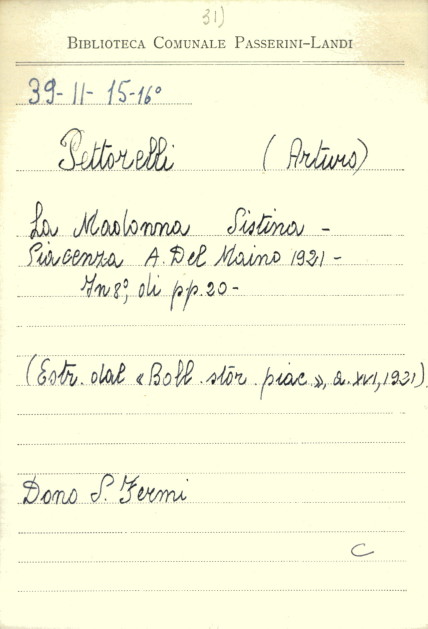 31)
BIBLIOTECA COMUNALE PASSERINI-LANDI
39-II-15-16°
Pettorelli (Arturo)
La Madonna Sistina -
Piacenza A. Del Maino 1921 -
In 8°, di pp. 20 -
(Estr. dal « Boll. stor. piac », a. XVI, 1921)
Dono S. Fermi
C